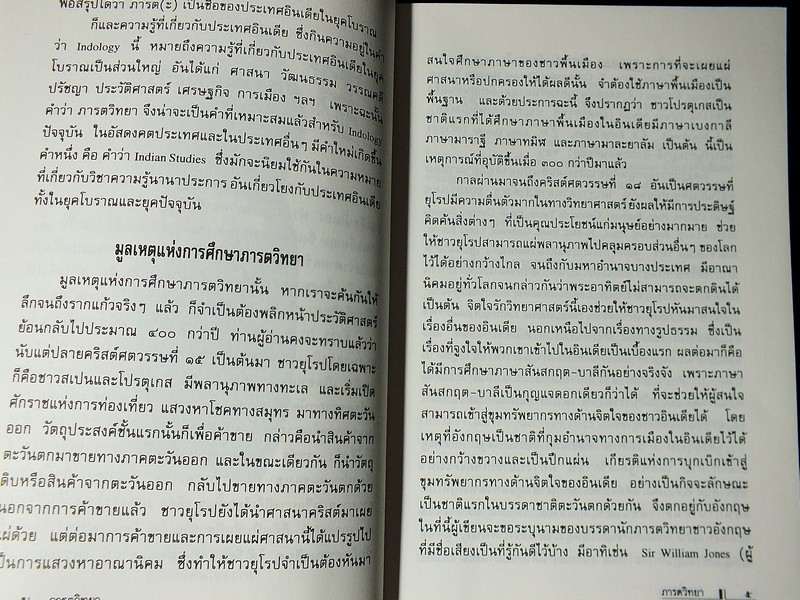 พอสรุปได้ว่า ภารต(ะ) เป็นชื่อของประเทศอินเดียในยุคโบราณ
ก็และความรู้ที่เกี่ยวกับประเทศอินเดีย ซึ่งกินความอยู่ในคำ
ว่า Indology นี้ หมายถึงความรู้ที่เกี่ยวกับประเทศอินเดียในยุค
โบราณเป็นส่วนใหญ่ อันได้แก่ ศาสนา วัฒนธรรม วรรณคดี
ปรัชญา ประวัติศาสตร์ เศรษฐกิจ การเมือง ฯลฯ เพราะฉะนั้น
คำว่า ภารตวิทยา จึงน่าจะเป็นคำที่เหมาะสมแล้วสำหรับ Indology
ปัจจุบัน ในอัสดงคตประเทศและในประเทศอื่นๆ มีคำใหม่เกิดขึ้น
คำหนึ่ง คือ คำว่า Indian Studies ซึ่งมักจะนิยมใช้กันในความหมาย
ที่เกี่ยวกับวิชาความรู้นานาประการ อันเกี่ยวโยงกับประเทศอินเดีย
ทั้งในยุคโบราณและยุคปัจจุบัน
มูลเหตุแห่งการศึกษาภารตวิทยา
มูลเหตุแห่งการศึกษาภารตวิทยานั้น หากเราจะค้นกันให้
ลึกจนถึงรากแก้วจริงๆ แล้ว ก็จำเป็นต้องพลิกหน้าประวัติศาสตร์
ย้อนกลับไปประมาณ ๔๐๐ กว่าปี ท่านผู้อ่านคงจะทราบแล้วว่า
นับแต่ปลายคริสต์ศตวรรษที่ ๑๕ เป็นต้นมา ชาวยุโรปโดยเฉพาะ
ก็คือชาวสเปนและโปรตุเกส มีพลานุภาพทางทะเล และเริ่มเปิด
ศักราชแห่งการท่องเที่ยว แสวงหาโชคทางสมุทร มาทางทิศตะวัน
ออก วัตถุประสงค์ชั้นแรกนั้นก็เพื่อค้าขาย กล่าวคือนำสินค้าจาก
ตะวันตกมาขายทางภาคตะวันออก และในขณะเดียวกัน ก็นำวัตถุ
ดิบหรือสินค้าจากตะวันออก กลับไปขายทางภาคตะวันตกด้วย
นอกจากการค้าขายแล้ว ชาวยุโรปยังได้นำศาสนาคริสต์มาเผย
แผ่ด้วย แต่ต่อมาการค้าขายและการเผยแผ่ศาสนานี้ได้แปรรูปไป
เป็นการแสวงหาอาณานิคม ซึ่งทำให้ชาวยุโรปจำเป็นต้องหันมา
ภารตวิทยา
สนใจศึกษาภาษาของชาวพื้นเมือง เพราะการที่จะเผยแผ่
ศาสนาหรือปกครองให้ได้ผลดีนั้น จำต้องใช้ภาษาพื้นเมืองเป็น
พื้นฐาน และด้วยประการฉะนี้ จึงปรากฏว่า ชาวโปรตุเกสเป็น
ชาติแรกที่ได้ศึกษาภาษาพื้นเมืองในอินเดียมีภาษาเบงกาลี
ภาษามาราฐี ภาษาทมิฬ และภาษามาละยาลัม เป็นต้น นี้เป็น
เหตุการณ์ที่อุบัติขึ้นเมื่อ ๓๐๐ กว่าปีมาแล้ว
กาลผ่านมาจนถึงคริสต์ศตวรรษที่ ๑๘ อันเป็นศตวรรษที่
ยุโรปมีความตื่นตัวมากในทางวิทยาศาสตร์ ยังผลให้มีการประดิษฐ์
คิดค้นสิ่งต่างๆ ที่เป็นคุณประโยชน์แก่มนุษย์อย่างมากมาย ช่วย
ให้ชาวยุโรปสามารถแผ่พลานุภาพไปคลุมครอบส่วนอื่นๆ ของโลก
ไว้ได้อย่างกว้างไกล จนถึงกับมหาอำนาจบางประเทศ มีอาณา
นิคมอยู่ทั่วโลกจนกล่าวกันว่าพระอาทิตย์ไม่สามารถจะตกดินได้
เป็นต้น จิตใจรักวิทยาศาสตร์นี้เองช่วยให้ชาวยุโรปหันมาสนใจใน
เรื่องอื่นของอินเดีย นอกเหนือไปจากเรื่องทางรูปธรรม ซึ่งเป็น
เรื่องที่จูงใจให้พวกเขาเข้าไปในอินเดียเป็นเบื้องแรก ผลต่อมาก็คือ
ได้มีการศึกษาภาษาสันสกฤต-บาลีกันอย่างจริงจัง เพราะภาษา
สันสกฤต-บาลีเป็นกุญแจดอกเดียวก็ว่าได้ ที่จะช่วยให้ผู้สนใจ
สามารถเข้าสู่ขุมทรัพยากรทางด้านจิตใจของชาวอินเดียได้ โดย
เหตุที่อังกฤษเป็นชาติที่กุมอำนาจทางการเมืองในอินเดียไว้ได้
อย่างกว้างขวางและเป็นปึกแผ่น เกียรติแห่งการบุกเบิกเข้าสู่
ขุมทรัพยากรทางด้านจิตใจของอินเดีย อย่างเป็นกิจจะลักษณะ
เป็นชาติแรกในบรรดาชาติตะวันตกด้วยกัน จึงตกอยู่กับอังกฤษ
ในที่นี้ผู้เขียนจะขอระบุนามของบรรดานักภารตวิทยาชาวอังกฤษ
ที่มีชื่อเสียงเป็นที่รู้กันดีไว้บ้าง มีอาทิเช่น Sir William Jones (ผู้
ภารตวิทยา ๕